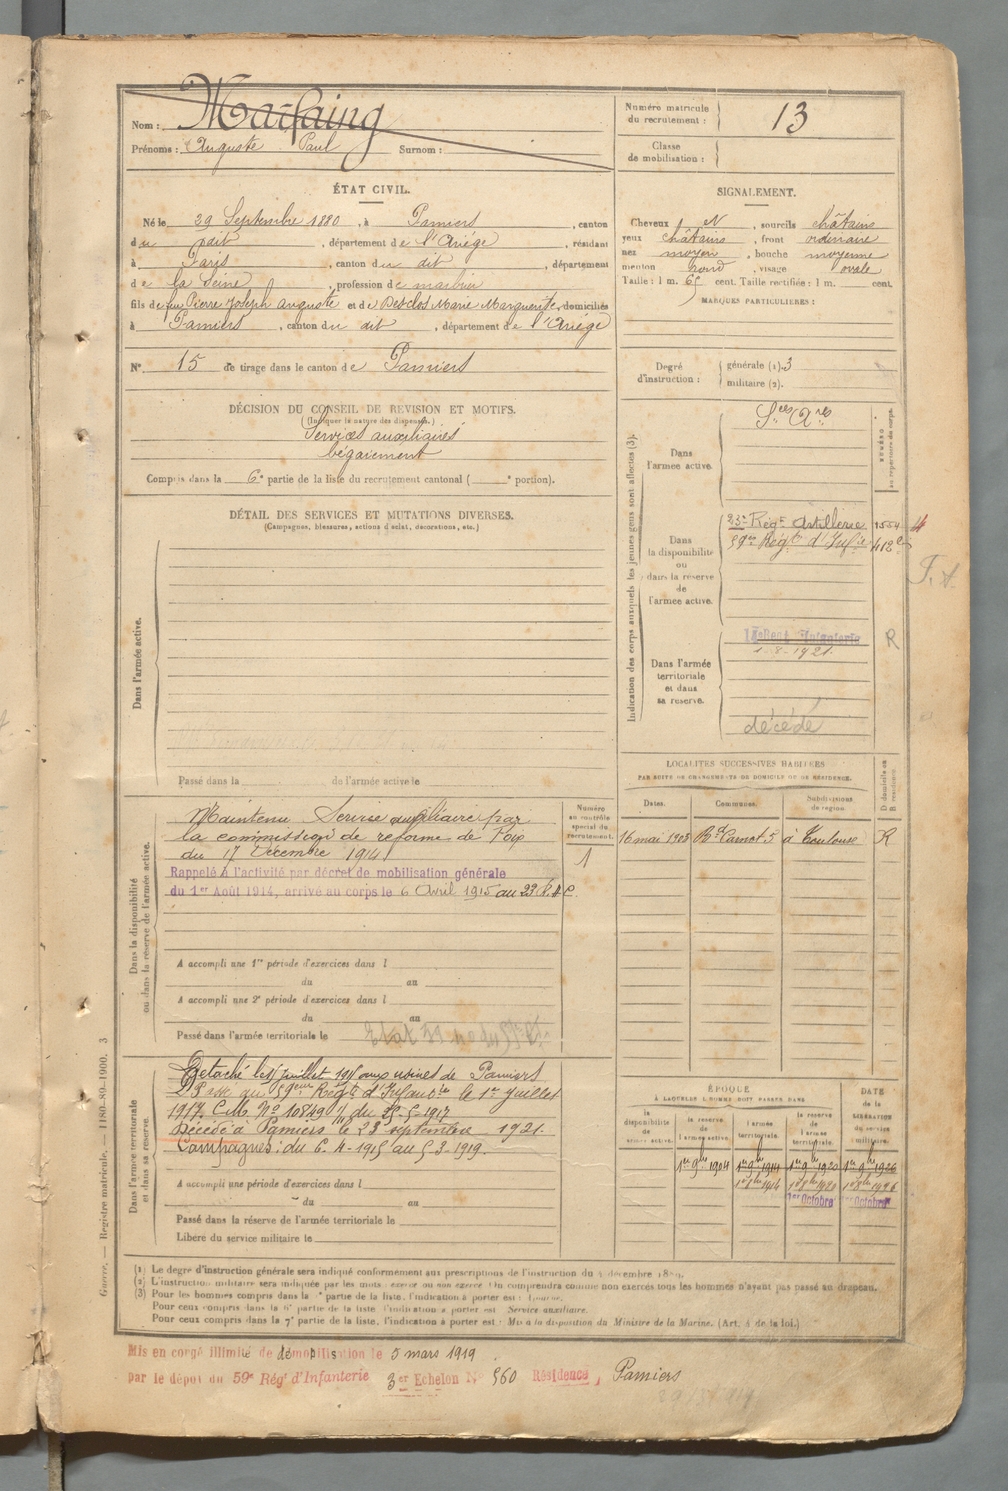 Nom :
Prénoms : Auguste Paul Surnom :
Numéro matricule
du recrutement : 13
Classe
de mobilisation :
ÉTAT CIVIL.
Né le 29 Septembre 1880, à Pamiers, canton
du dit, département de l'Ariége, résidant
à Paris, canton du dit, département
de la Seine, profession de marbrier
fils de feu Pierre Joseph Auguste et de Desclos Marie Marguerite, domiciliés
à Pamiers, canton du dit, département de l'Ariége
N° 15 de tirage dans le canton de Pamiers
SIGNALEMENT.
Cheveux N, sourcils châtains
yeux châtains, front ordinaire
nez moyen, bouche moyenne
menton rond, visage ovale
Taille : 1 m. cent. Taille rectifiée : 1 m. cent.
MARQUES PARTICULIÈRES :
Degré
d'instruction :
générale (1). 3
militaire (2).
DÉCISION DU CONSEIL DE REVISION ET MOTIFS.
(Indiquer la nature des dispenses.)
Services auxiliaires
bégaiement
Compris dans la 6e partie de la liste du recrutement cantonal ( e portion).
DÉTAIL DES SERVICES ET MUTATIONS DIVERSES.
(Campagnes, blessures, actions d'éclat, décorations, etc.)
Dans l'armée active.
Passé dans la de l'armée active le
Indication des corps auxquels les jeunes gens sont affectés (3).
NUMÉRO
au répertoire du corps.
Dans
l'armée active.
Sces Ares
Dans
la disponibilité
ou
dans la réserve
de
l'armée active.
23e Régt Artillerie 1554
59me Régt d'Infie 412
Dans l'armée
territoriale
et dans
sa réserve.
Regt Infanterie R
1-8-1921
décédé
LOCALITÉS SUCCESSIVES HABITÉES
PAR SUITE DE CHANGEMENTS DE DOMICILE OU DE RÉSIDENCE.
D domicile ou
R résidence.
Dates. Communes. Subdivisions
de région.
16 mai 1903 Bd Carnot 5 à Toulouse R
Dans la disponibilité
ou dans la réserve de l'armée active.
Numéro
au contrôle
spécial du
recrutement.
1
Maintenu Service auxiliaire par
la commission de réforme de Foix
du 17 Décembre 1914
Rappelé à l'activité par décret de mobilisation générale
du 1er Août 1914, arrivé au corps le 6 Avril 1915 au 23 R.A.C
A accompli une 1re période d'exercices dans l
du au
A accompli une 2e période d'exercices dans l
du au
Passé dans l'armée territoriale le
Dans l'armée territoriale
et dans sa réserve.
Détaché le juillet aux usines de Pamiers
Passé au 59eme Régt d'Infanterie le 1er Juillet
1917. C.M. No 10849 du 1917
Décédé à Pamiers le 23 septembre 1921.
Campagnes: du 6-4-1915 au 5-3-1919.
A accompli une période d'exercices dans l
du au
Passé dans la réserve de l'armée territoriale le
Libéré du service militaire le
ÉPOQUE
À LAQUELLE L'HOMME DOIT PASSER DANS
DATE
de la
LIBÉRATION
du service
militaire.
la
disponibilité
de
l'armée active.
la réserve
de
l'armée active.
l'armée
territoriale.
la réserve
de
l'armée
territoriale.
1er 9bre 1904 1er 9bre 1914 1er 9bre 1920 1er 9bre 1926
1er Octobre 1er Octobre
Guerre. — Registre matricule. — 1180-80-1900. 3
(1) Le degré d'instruction générale sera indiqué conformément aux prescriptions de l'instruction du décembre
(2) L'instruction militaire sera indiquée par les mots : exercé ou non exercé. On comprendra comme non exercés tous les hommes n'ayant pas passé au drapeau.
(3) Pour les hommes compris dans la partie de la liste, l'indication à porter est :
Pour ceux compris dans la 6e partie de la liste, l'indication à porter est : Service auxiliaire.
Pour ceux compris dans la 7e partie de la liste, l'indication à porter est : Mis à la disposition du Ministre de la Marine. (Art. 4 de la loi.)
Mis en congé illimité de démobilisation le 5 mars 1919
par le dépôt du 59e Régt d'Infanterie 3er Echelon N° 560 Résidence, Pamiers